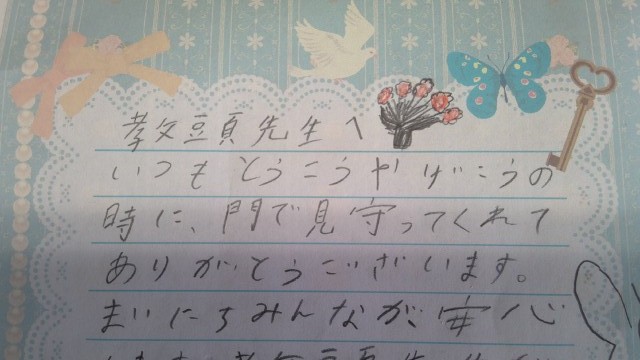 教頭先生へ
いつもとうこうやげこうの
時に、門で見守ってくれて
ありがとうございます。
まいにちみんなが、安心